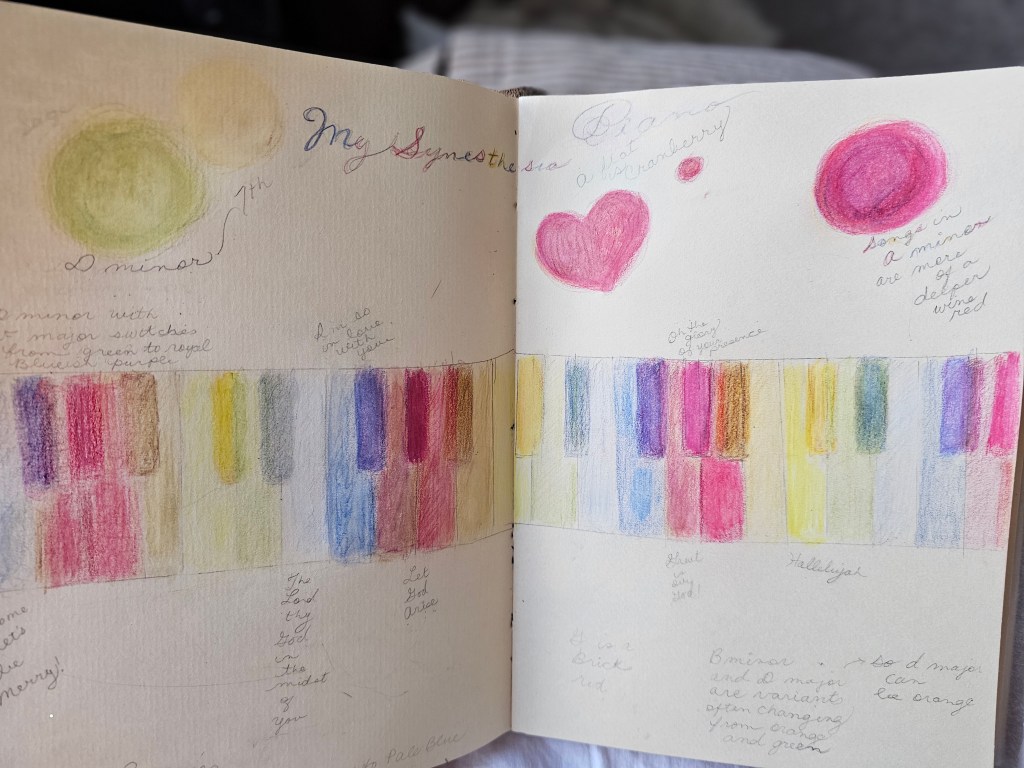 My Synesthesia Piano
7th
D minor
D minor with
major switches
from green to royal
purple
I'm so
in love
with
you
The
Lord
thy
God
in
the
midst
of
you
Let
God
Arise
Let's
Merry!
to Pale Blue
a
Cranberry
Songs in
A minor
are more
of a
deeper
wine
red
Oh the
glory
of your presence
Great
is
God!
Hallelujah
is a
Brick
red
B minor
and D major
are variant
often changing
from orange
and green
so d major
can
be orange